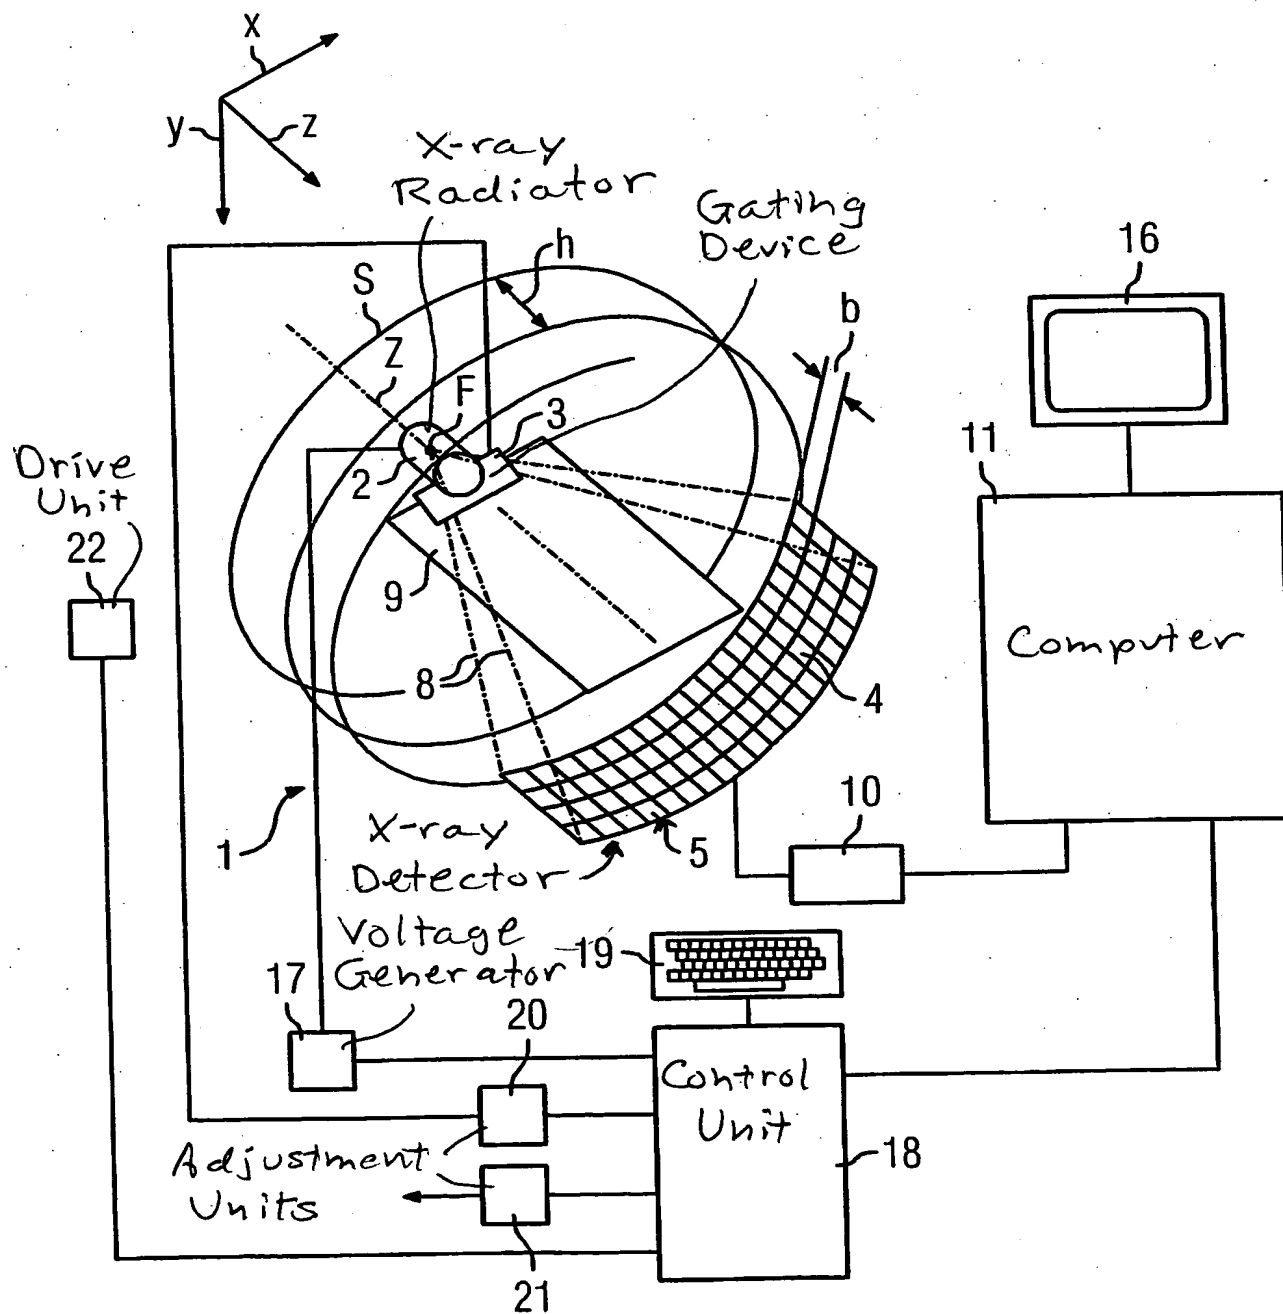 x
y
z
X-ray
Radiator
Gating
Device
h
16
S
b
Z
F
3
11
Drive
Unit
2
22
9
Computer
8
4
10
1
X-ray
Detector
5
Voltage
Generator
19
17
20
Control
Unit
18
Adjustment
Units
21